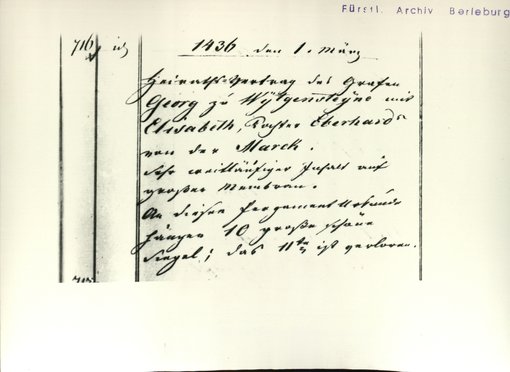 Fürstl. Archiv Berleburg
716
1436 den 1. März
Heiraths-Vertrag des Grafen
Georg zu Wytgensteyne mit
Elisabeth, Tochter Eberhards
von der Marck.
Sehr weitläufiger Inhalt auf
großer Membran.
An dieser Pergament Urkunde
hängen 10 große schöne
Siegel; das 11te ist verloren.